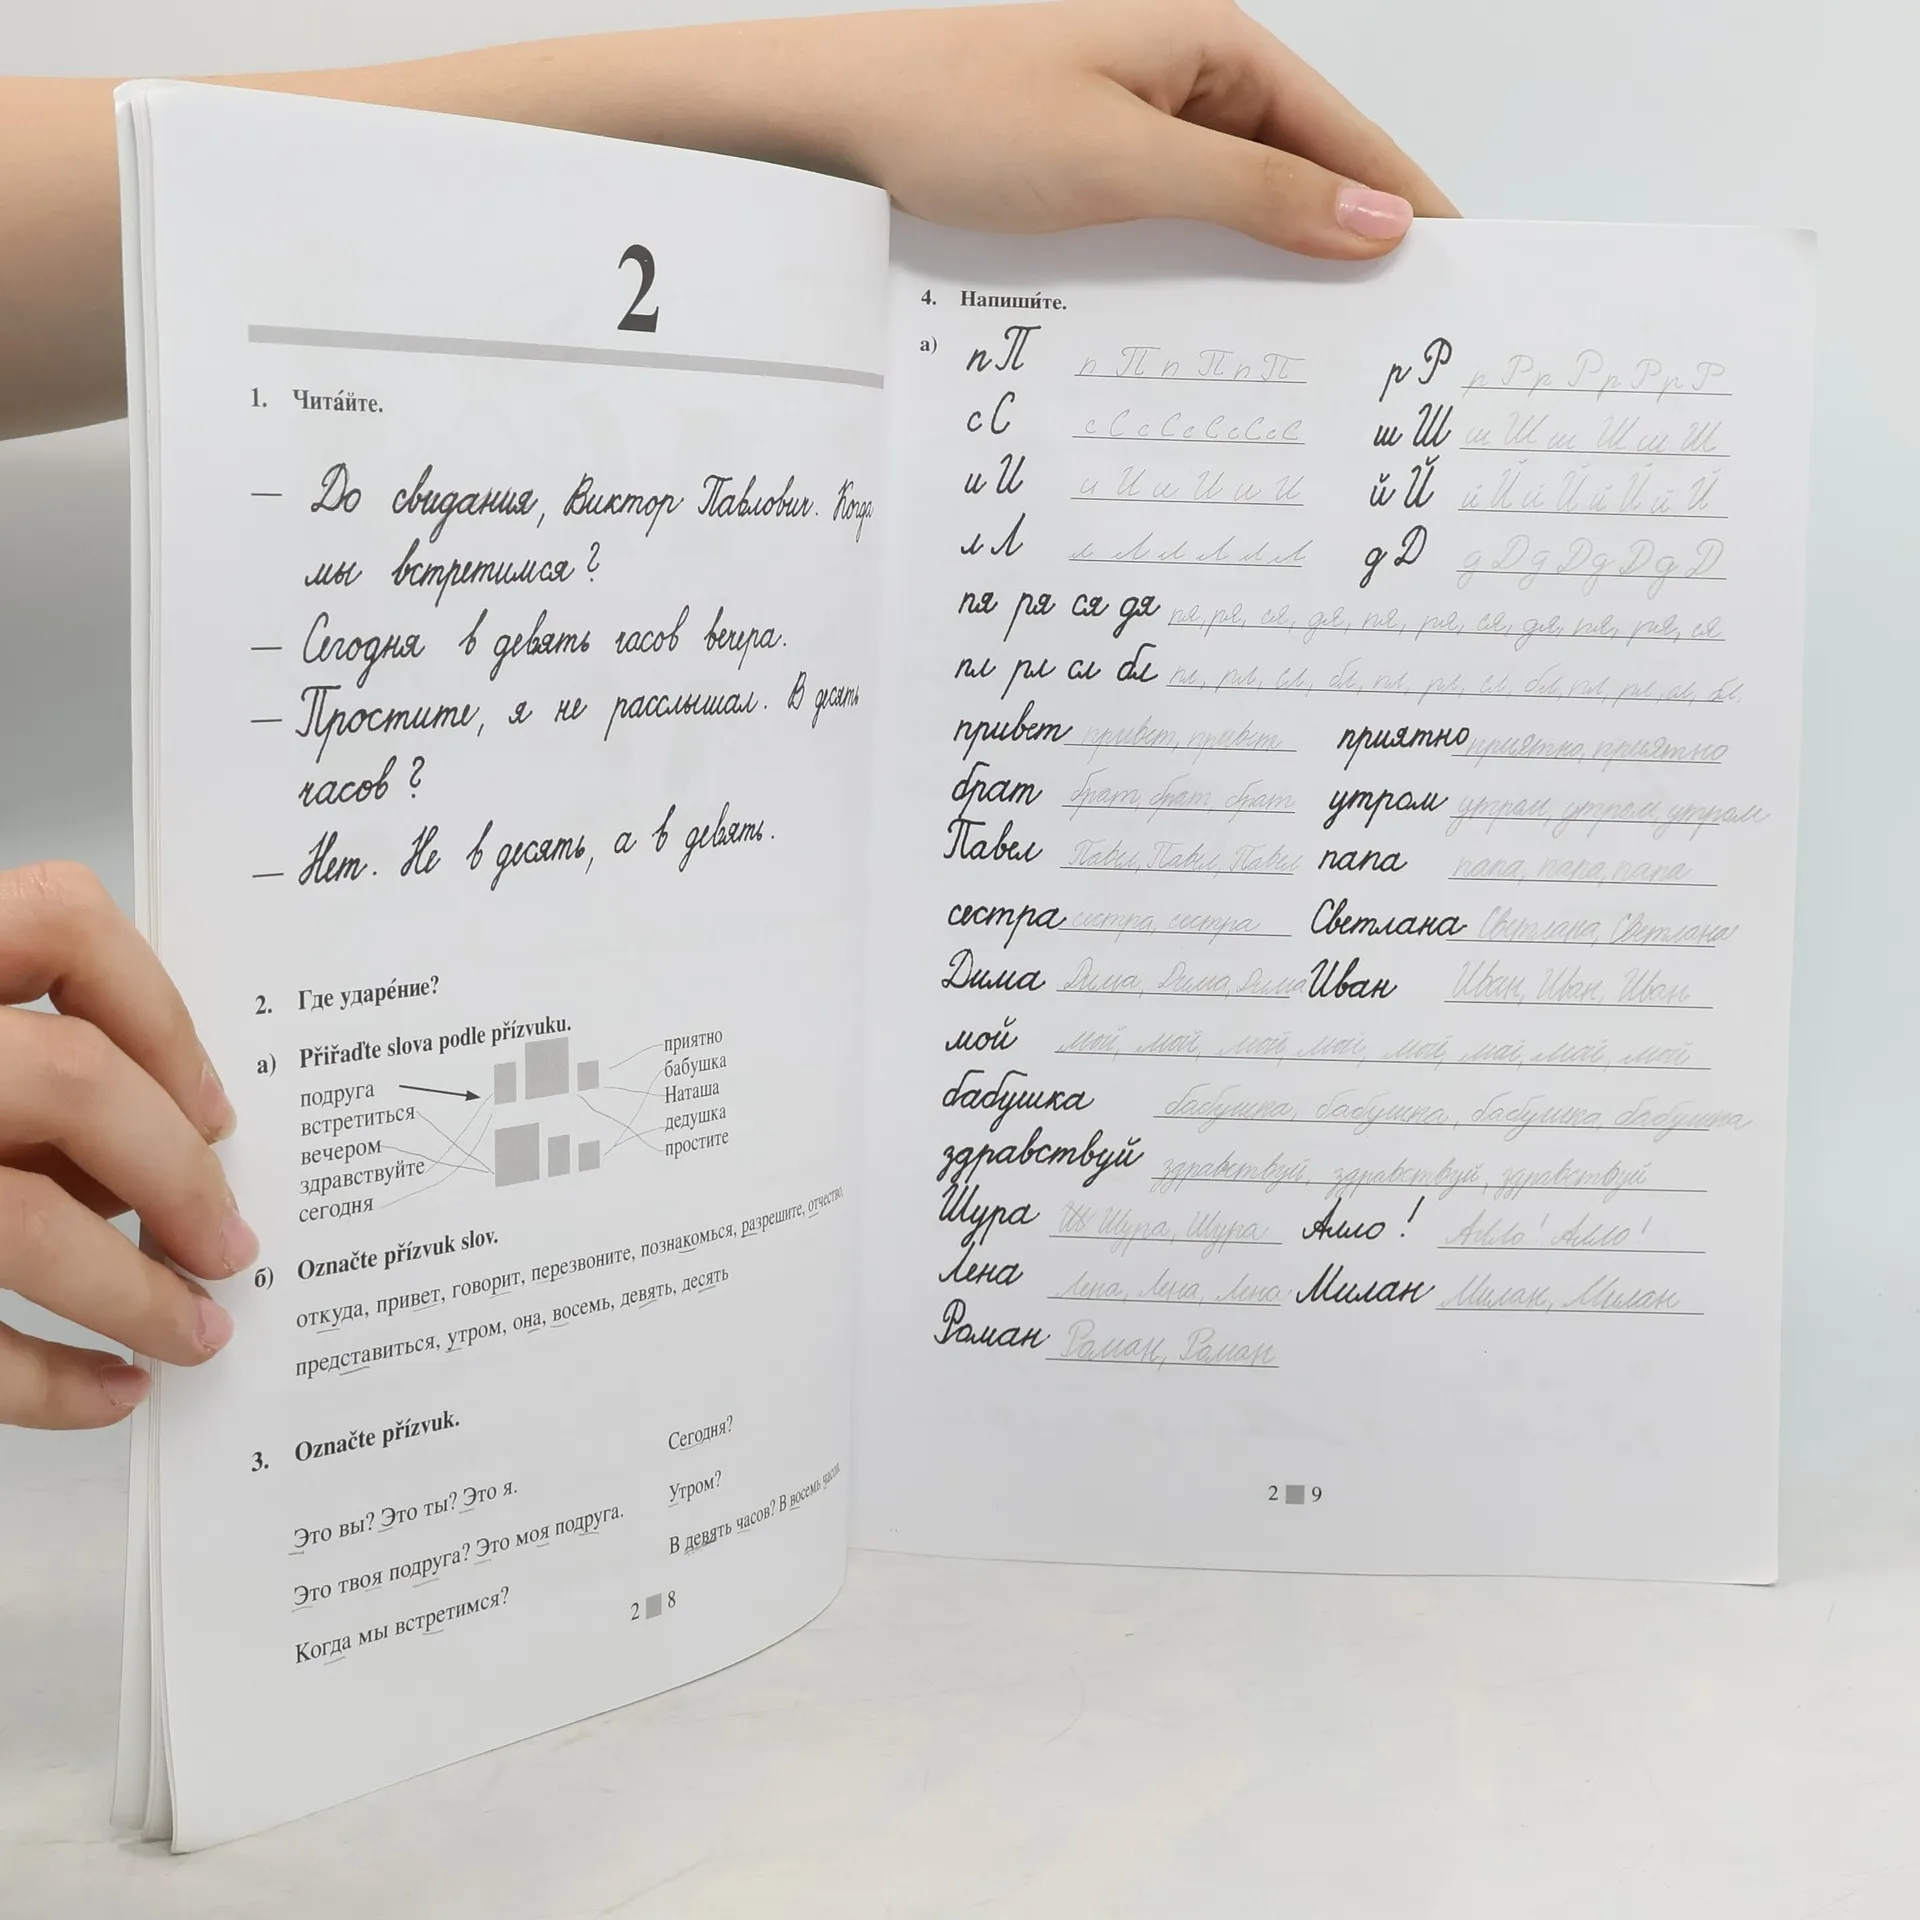 2
1. Чита́йте.
— До свидания, Виктор Павлович. Когда
мы встретимся?
— Сегодня в девять часов вечера.
— Простите, я не расслышал. В десять
часов?
— Нет. Не в десять, а в девять.
2. Где ударе́ние?
а) Přiřaďte slova podle přízvuku.
подруга
встретиться
вечером
здравствуйте
сегодня
приятно
бабушка
Наташа
дедушка
простите
б) Označte přízvuk slov.
откуда, привет, говорит, перезвоните, познакомься, разрешите, отчество,
представиться, утром, она, восемь, девять, десять
3. Označte přízvuk.
Это вы? Это ты? Это я.
Это твоя подруга? Это моя подруга.
Когда мы встретимся?
Сегодня?
Утром?
В девять часов? В восемь часов.
2 8
4. Напиши́те.
а) п П п П п П п П р Р р Р р Р р Р р Р
с С с С с С с С с С ш Ш ш Ш ш Ш ш Ш
и И и И и И и И й Й й Й й Й й Й й Й
л Л л Л л Л л Л д Д д Д д Д д Д д Д
пя ря ся дя пя, ря, ся, дя, пя, ря, ся, дя, пя, ря, ся
пл рл сл бл пл, рл, сл, бл, пл, рл, сл, бл, пл, рл, сл, бл,
привет привет, привет приятно приятно, приятно
брат брат, брат, брат утром утром, утром, утром
Павел Павел, Павел, Павел папа папа, папа, папа
сестра сестра, сестра Светлана Светлана, Светлана
Дима Дима, Дима, Дима Иван Иван, Иван, Иван
мой мой, мой, мой, мой, мой, мой, мой, мой
бабушка бабушка, бабушка, бабушка, бабушка
здравствуй здравствуй, здравствуй, здравствуй
Шура Шура, Шура Алло! Алло! Алло!
Лена Лена, Лена, Лена Милан Милан, Милан
Роман Роман, Роман
2 9